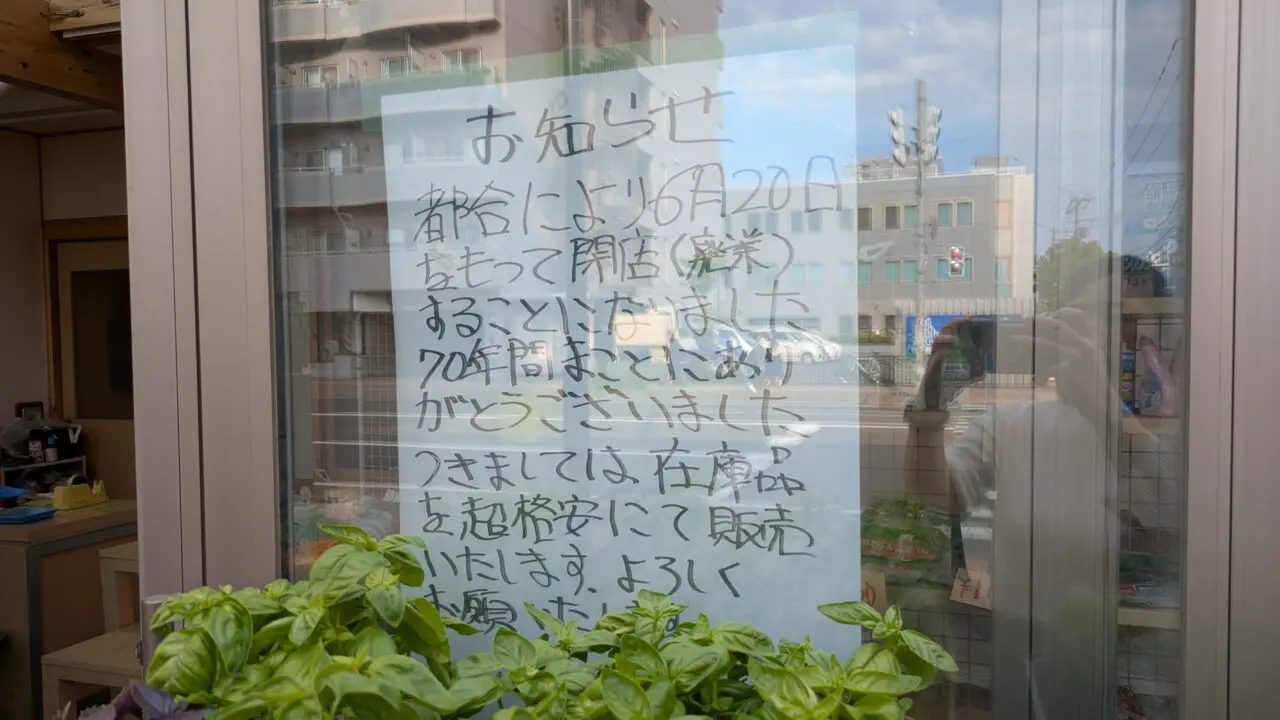 お知らせ
都合により6月20日
をもって閉店(廃業)
することになりました
70年間まことにあり
がとうございました
つきましては、在庫品
を超格安にて販売
いたします、よろしく
お願いいたします